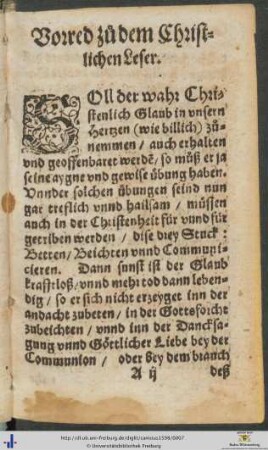 Vorred zů dem Christ-
lichen Leser.
SOll der wahr Chri-
stenlich Glaub in vnsern
Hertzen (wie billich) zů-
nemmen / auch erhalten
vnd geoffenbaret werdẽ / so můß er ja
seine aygne vnd gewise übung haben.
Vnnder solchen übungen seind nun
gar treflich vnnd hailsam / müssen
auch in der Christenheit für vnnd für
getriben werden / dise drey Stuck:
Betten / Beichten vnnd Communi-
cieren. Dann sunst ist der Glaub
krafftloß / vnnd mehr tod dann leben-
dig / so er sich nicht erzeyget inn der
andacht zubeten / in der Gottsforcht
zubeichten / vnnd inn der Dancksa-
gung vnnd Göttlicher Liebe bey der
Communion / oder bey dem brauch
A ij deß
http://dl.ub.uni-freiburg.de/diglit/canisius1596/0007
© Universitätsbibliothek Freiburg
Baden-Württemberg